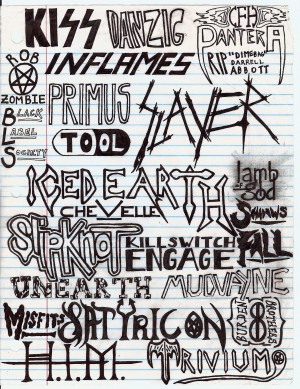 KISS
DANZIG
CFH
PANTERA
RIP "DIMEBAG"
DARRELL
ABBOTT
ROB
ZOMBIE
INFLAMES
BLACK
LABEL
SOCIETY
PRIMUS
TOOL
SLAYER
ICED EARTH
lamb
of
God
CHEVELLE
SHADOWS
FALL
SLIPKNOT
KILLSWITCH
ENGAGE
UNEARTH
MUDVAYNE
MISFITS
SATYRICON
BURDEN
BROTHERS
H.I.M.
TRIVIUM